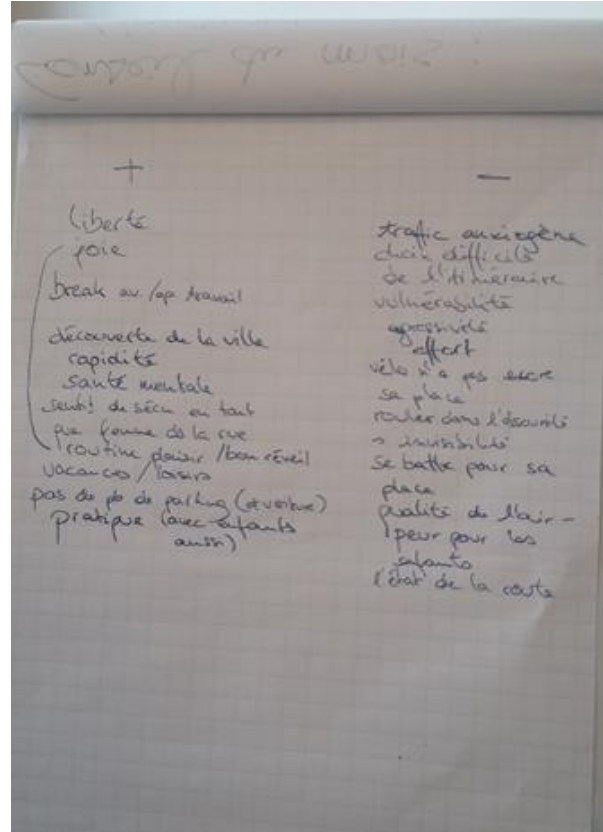 +
liberté
joie
break av./ap. travail
découverte de la ville
rapidité
santé mentale
sentit de sécu en tant
que femme ds la rue
routine plaisir / bon réveil
vacances / loisirs
pas de pb de parking (et voiture)
pratique (avec enfants
aussi)
—
traffic anxiogène
choix difficile
de l'itinéraire
vulnérabilité
agressivité
effort
vélo n'a pas encore
sa place
rouler dans l'obscurité
invisibilité
se battre pour sa
place
qualité de l'air -
peur pour les
enfants
l'état de la route